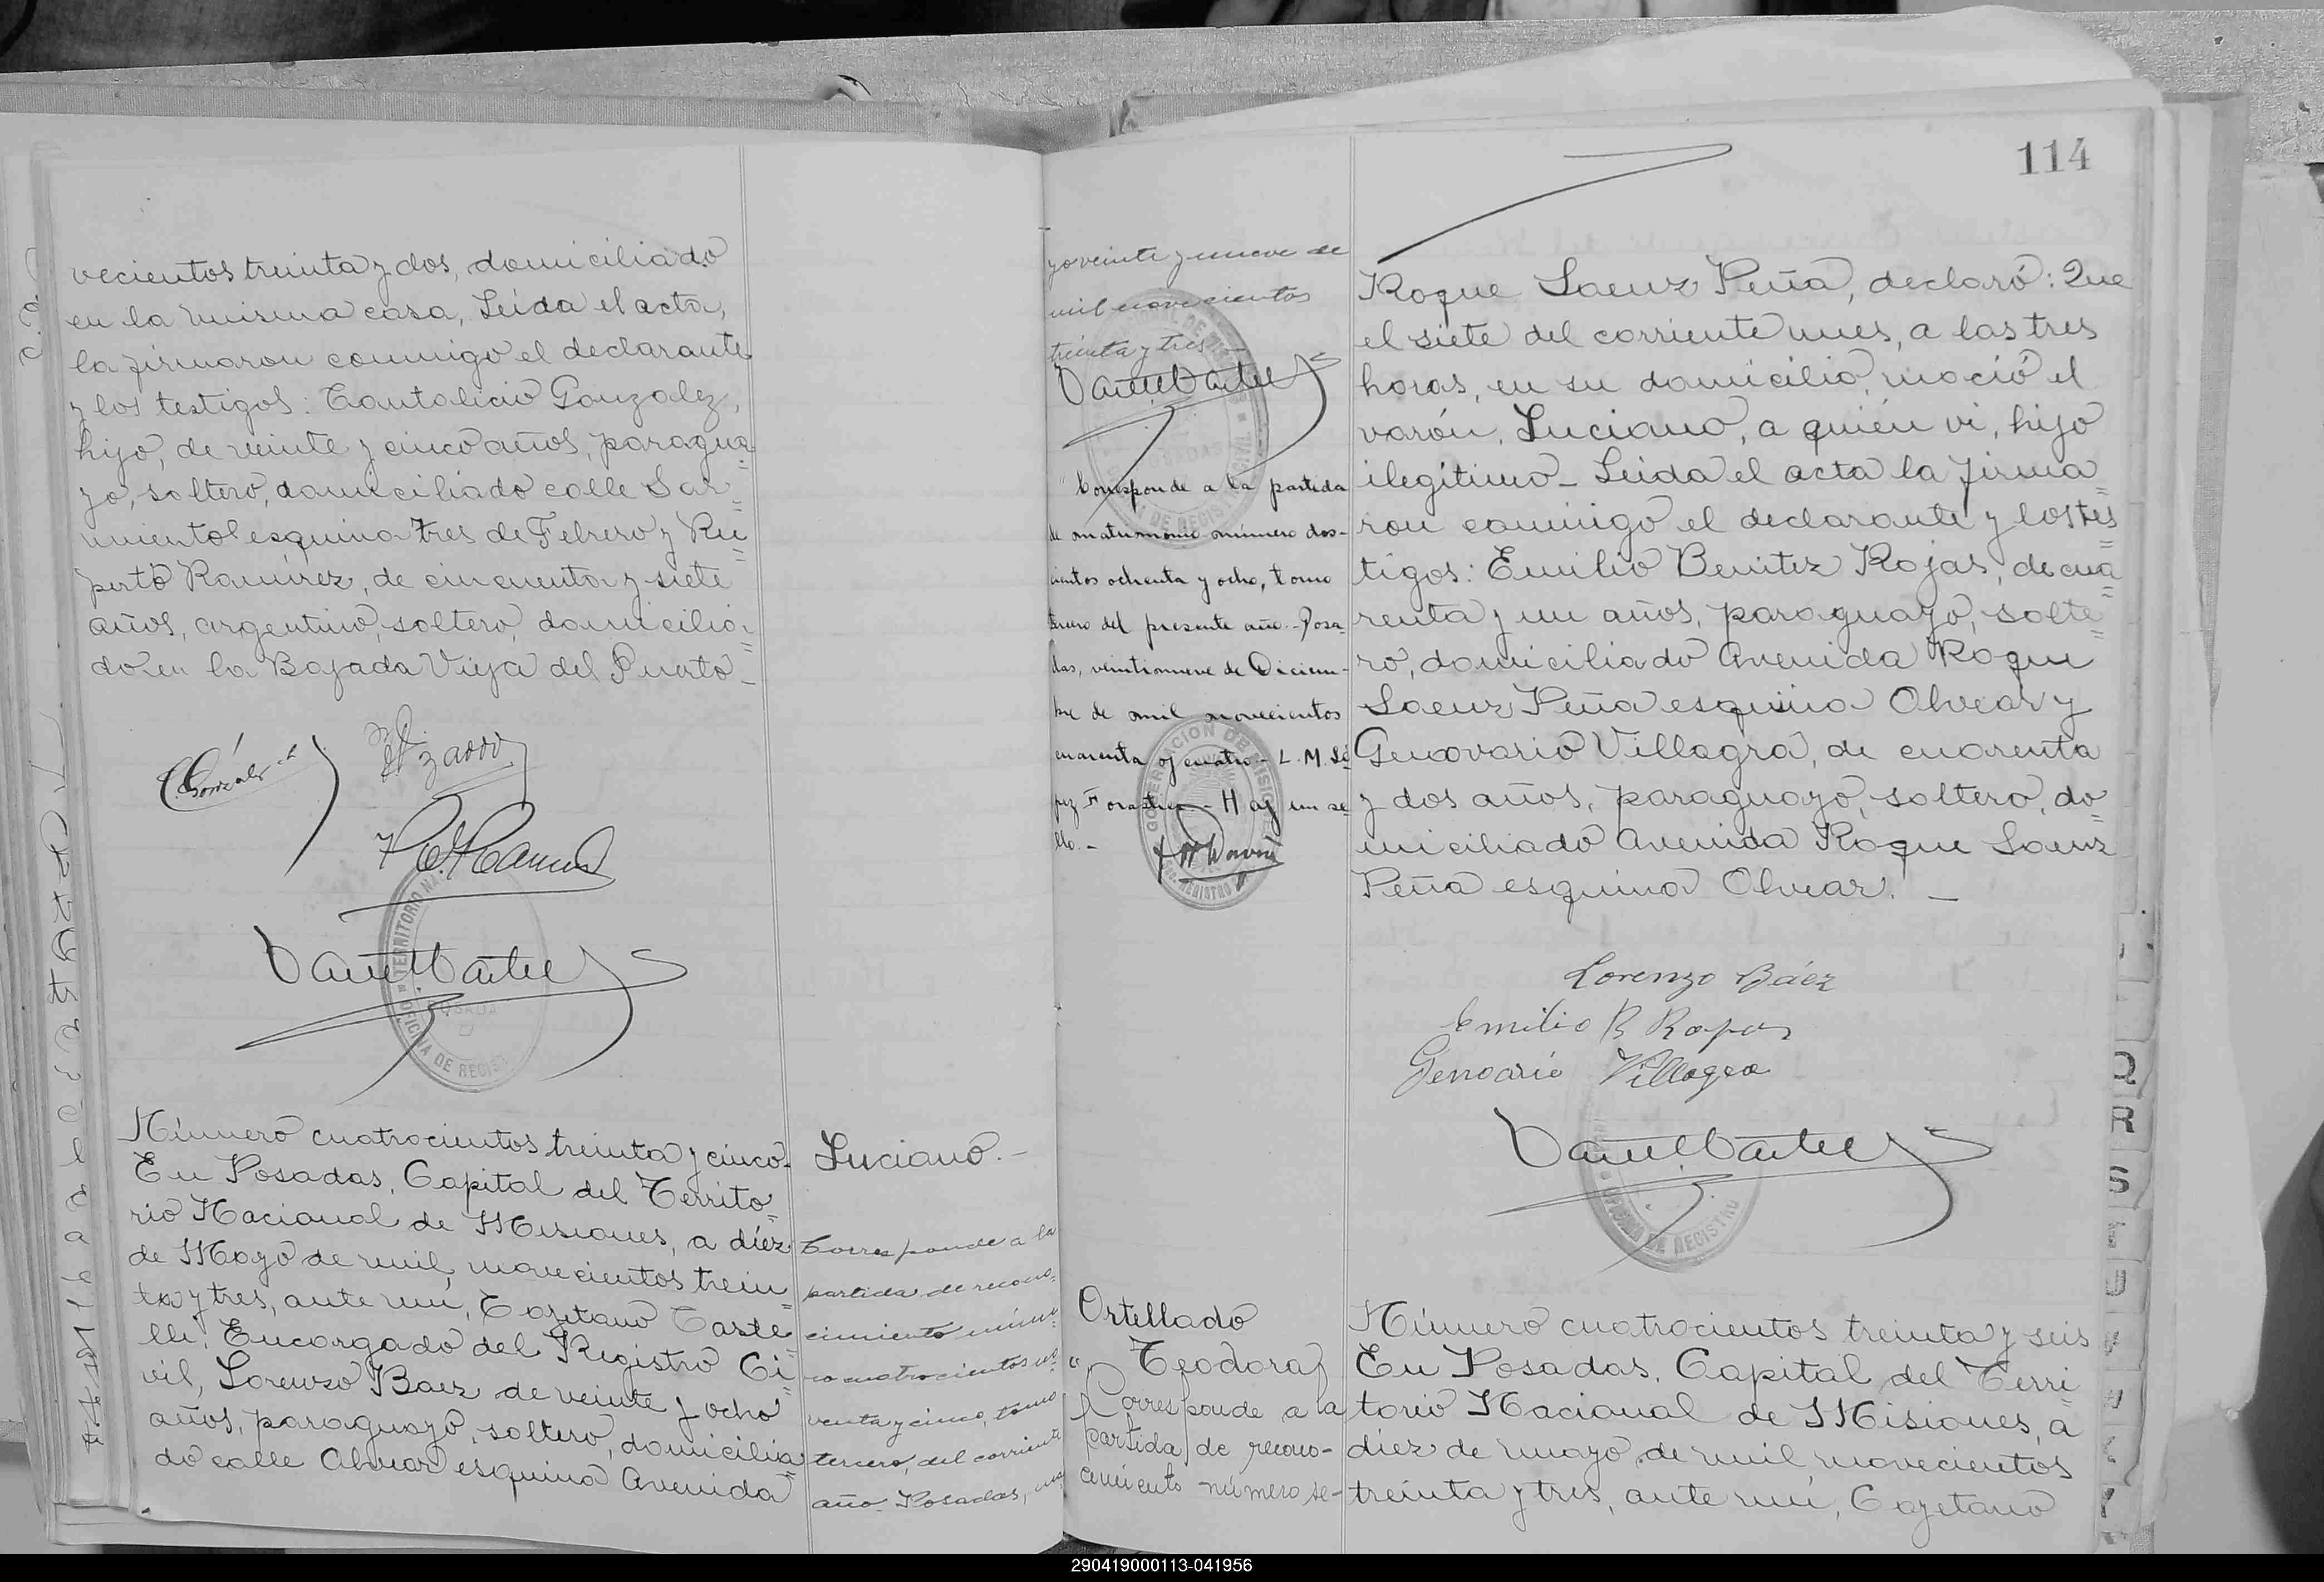 vecientos treinta y dos, domiciliado
en la misma casa, Leída el acta,
la firmaron conmigo el declarante
y los testigos: Cantalicio Gonzalez,
hijo, de veinte y cinco años, paragua=
yo, soltero, domiciliado calle Sar=
miento esquina tres de Febrero y Ru=
perto Ramírez, de cincuenta y siete
años, argentino, soltero, domicilia=
do en la Bajada Vieja del Puerto_
C. Gonzalez h
TERRITORIO NA
OFICINA DE REGIS
Número cuatrocientos treinta y cinco.
En Posadas, Capital del Territo=
rio Nacional de Misiones, a diez
de Mayo de mil novecientos trein=
ta y tres, ante mí, Cayetano Caste=
lli, Encargado del Registro Ci=
vil, Lorenzo Baez de veinte y ocho
años, paraguayo, soltero, domicilia=
do calle Alvear esquina Avenida
Luciano.-
Corresponde a la
partida de recono=
cimiento núme=
ro cuatrocientos no=
venta y cinco, tomo
tercero, del corriente
año. Posadas, ma=
yo veinte y nueve de
mil novecientos
treinta y tres
Corresponde a la partida
de matrimonio número dos-
cientos ochenta y ocho, tomo
tercero del presente año.- Posa-
das, veintinueve de Diciem-
bre de mil novecientos
cuarenta y cuatro.- L. M. Ló-
pez Forastier - Hay un se-
llo.-
GOBERNACION DE MISIONES
REGISTRO
114
Roque Saenz Peña, declaró: Que
el siete del corriente mes, a las tres
horas, en su domicilio, nació el
varón, Luciano, a quién vi, hijo
ilegítimo_ Leida el acta la firma=
ron conmigo el declarante y los tes=
tigos: Emilio Benitez Rojas, de cua=
renta y un años, paraguayo, solte=
ro, domiciliado Avenida Roque
Saenz Peña esquina Alvear y
Genovario Villagra, de cuarenta
y dos años, paraguayo, soltero, do=
miciliado Avenida Roque Saenz
Peña esquina Alvear. _
Lorenzo Báez
Emilio B Rojas
Genoario Villagra
OFICINA DE REGISTRO
Ortellado
" Teodora
Corresponde a la
partida de recono-
cimiento número se-
Número cuatrocientos treinta y seis
En Posadas, Capital del Terri=
torio Nacional de Misiones, a
diez de mayo de mil novecientos
treinta y tres, ante mí, Cayetano
Q
R
S
U
290419000113-041956